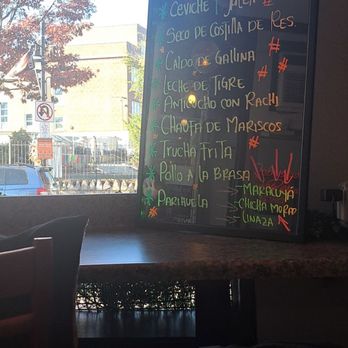 * CEVICHE
* SECO DE COSTILLA DE RES
* CALDO DE GALLINA #
* LECHE DE TIGRE #
* ANTICUCHO CON RACHI
* CHAUFA DE MARISCOS
* TRUCHA FRITA #
* POLLO A LA BRASA
* PARIHUELA
- MARACUYA
- CHICHA MORAD
- LINAZA